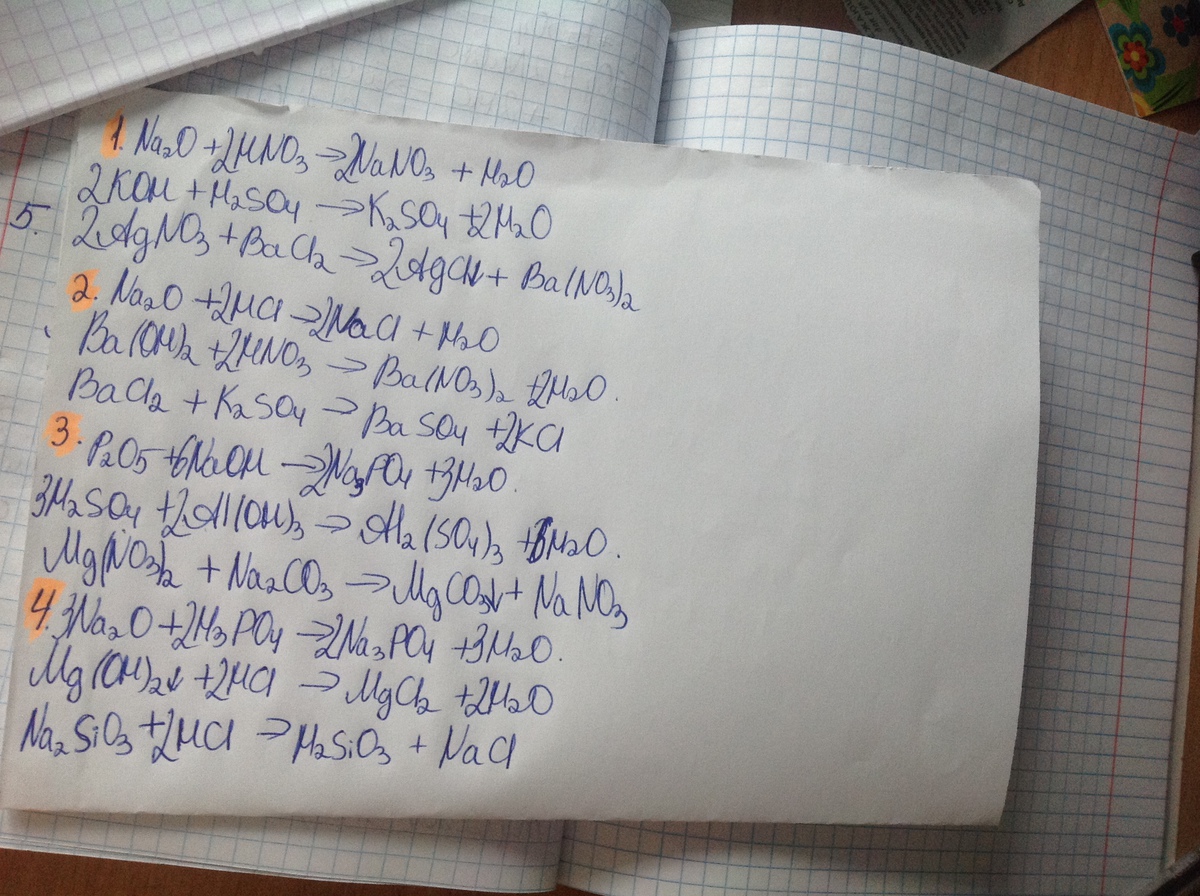 1. Na₂O + 2HNO₃ → 2NaNO₃ + H₂O
2KOH + H₂SO₄ → K₂SO₄ + 2H₂O
5.
2AgNO₃ + BaCl₂ → 2AgCl↓ + Ba(NO₃)₂
2. Na₂O + 2HCl → 2NaCl + H₂O
Ba(OH)₂ + 2HNO₃ → Ba(NO₃)₂ + 2H₂O.
BaCl₂ + K₂SO₄ → BaSO₄ + 2KCl
3. P₂O₅ + 6NaOH → 2Na₃PO₄ + 3H₂O.
3H₂SO₄ + 2Al(OH)₃ → Al₂(SO₄)₃ + 6H₂O.
Mg(NO₃)₂ + Na₂CO₃ → MgCO₃↓ + NaNO₃
4. 3Na₂O + 2H₃PO₄ → 2Na₃PO₄ + 3H₂O.
Mg(OH)₂↓ + 2HCl → MgCl₂ + 2H₂O
Na₂SiO₃ + 2HCl → H₂SiO₃ + NaCl